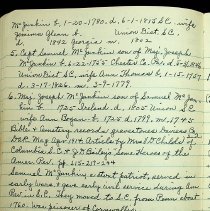 McJunkin b, 1-20-1780. d, 6-1-1815 S.C. wife
Jemima Glenn b. Union Dist. S.C.
d, 1842 Georgia m, 1802
5. Capt Samuel McJunkin son of Maj. Joseph
McJunkin b, 2-22-1755 Chester Co. Pa d
Union Dist S.C. wife Ann Thomas b, 1-15-1757
d, m, 3-9-1779.
6. Maj. Joseph McJunkin son of Samuel
kin b, 1725 Ireland. d, 1805 Union S.C.
wife Ann Bogan b, 1725 d, 1789. m, 1745
Bible & cemetery records gravestones
DAR Mag April 1914 Article by Mrs S.D. Childs of
Columbia S.C. & J.D. Bailey Some Heroes of the
Amer. Rev. pp 215-219-244
Samuel McJunkin, earnest patriot, served in
early wars & gave early civil service during Am
Rev in S.C. They moved to S.C. from Penn about
1760. was prisoner of Cornwallis